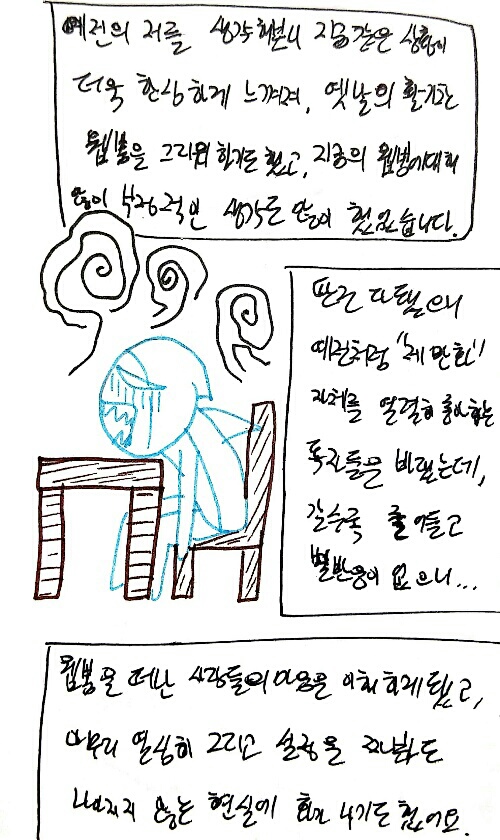 예전의 저를 생각해보니 지금같은 상황이
더욱 한심하게 느껴져, 옛날의 활기찬
웹봄을 그리워 하기도 했고, 지금의 웹봄에대해
많이 부정적인 생각도 많이 했었습니다.
판은 다들으니
예전처럼 '제 만화'
자체를 열렬히 좋아하는
독자들을 바랬는데,
갈수록 줄어들고
별반응이 없으니...
웹봄을 떠난 사람들의 마음을 이해하게 됐고,
아무리 열심히 그리고 설정을 짜봐도
나아지지 않는 현실에 화가 나기도 했어요.